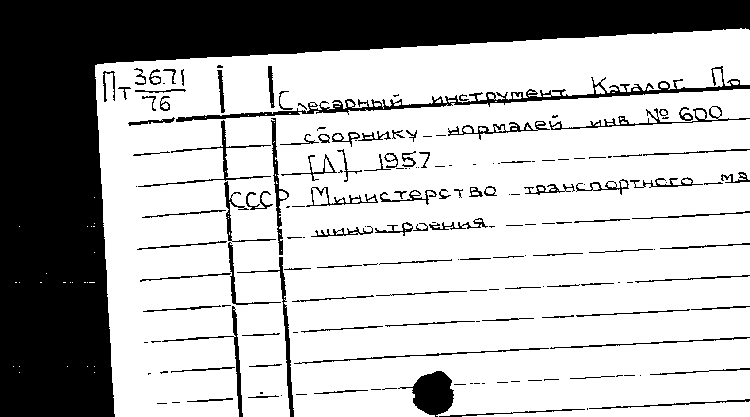 Пт 3671
76
Слесарный инструмент Каталог По
сборнику нормалей инв № 600
[Л.] 1957
СССР Министерство транспортного ма
шиностроения